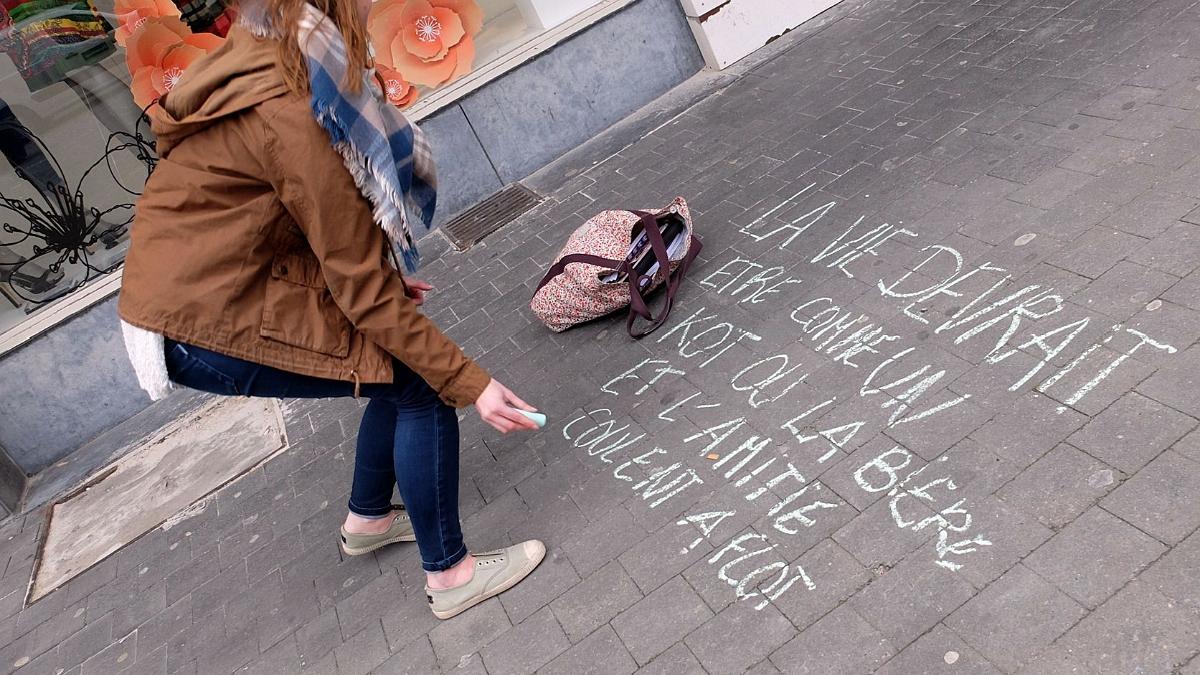 LA VIE DEVRAIT
ETRE COMME UN
KOT OU LA BIÈRE
ET L'AMITIE
COULENT A FLOT